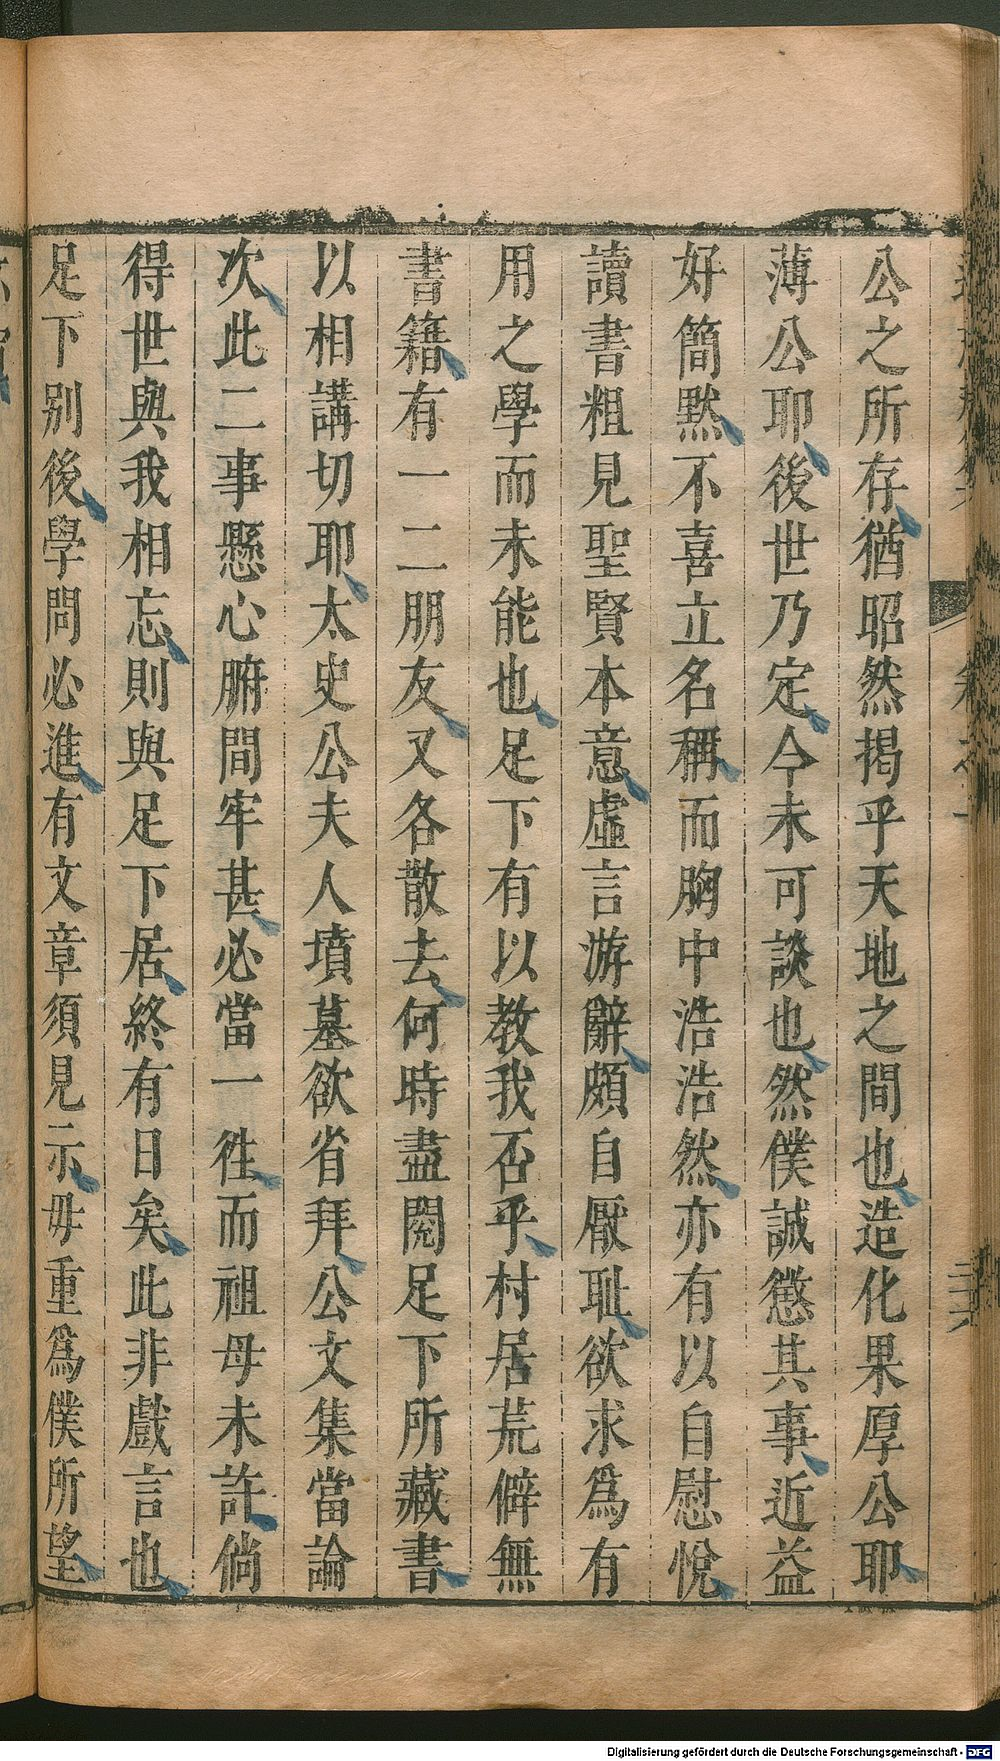 公之所存猶昭然揭乎天地之間也造化果厚公耶
薄公耶後世乃定今未可談也然僕誠懲其事近益
好簡默不喜立名稱而胸中浩浩然亦有以自慰悅
讀書粗見聖賢本意虛言游辭頗自厭耻欲求爲有
用之學而未能也足下有以教我否乎村居荒僻無
書籍有一二朋友又各散去何時盡閱足下所藏書
以相講切耶太史公夫人墳墓欲省拜公文集當論
次此二事懸心腑間牢甚必當一徃而祖母未許倘
得世與我相忘則與足下居終有日矣此非戲言也
足下別後學問必進有文章須見示毋重爲僕所望
二六
Digitalisierung gefördert durch die Deutsche Forschungsgemeinschaft - DFG